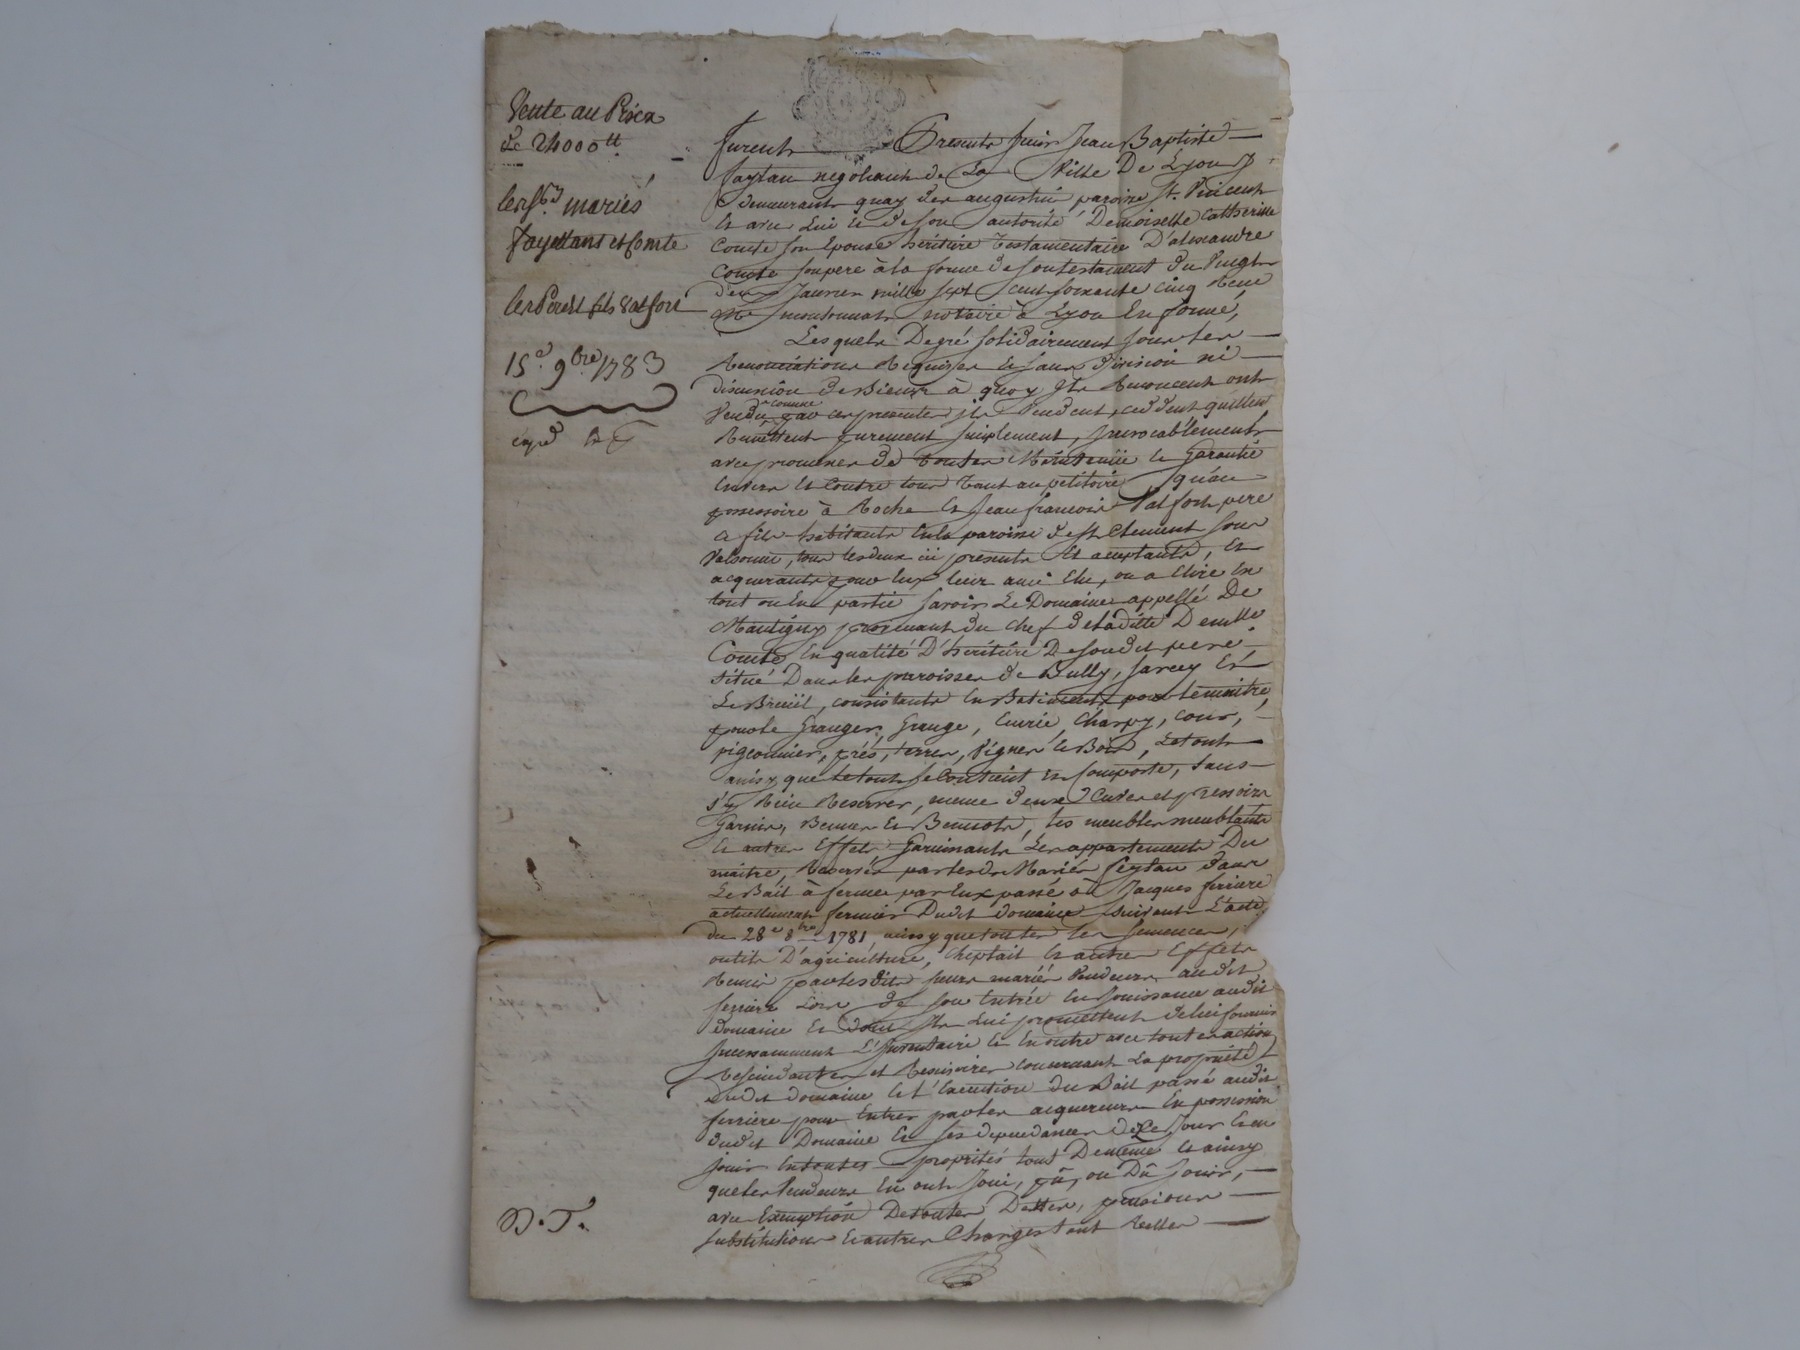 Vente au Prix
de 24000 ll
les srs mariés
fayettant et Comte
les Pere et fils Valfort
15e 9bre 1783
expd
furent Presents Sieur Jean Baptiste
faytau negotiant de La Ville De Lyon y
demeurant quay des augustins paroisse St. Vincent
Et avec Lui et de son autorité Demoiselle Catherine
Comte son Epouse heritiere Testamentaire D'alexandre
Comte son pere à la forme de son testament du Vingt
deux Janvier mille sept Cent soixante cinq Reçu
Me notaire à Lyon En forme,
Lesquels De gré solidairement sous les
Renonciations Requises et sans division ni
discussion de Biens à quoy Ils Renoncent ont
Vendu comme par ces presentes ils Vendent, cedent quittent
Remettent purement simplement, irrevocablement
avec promesse de toutes Maintenüe et Garantie
Envers Et Contre tous Tant au petitoire qu'au
possessoire à Roche Et Jean françois Valfort pere
et fils habitants En la paroisse de St. Clement sous
Valsonne, tous les deux ici presents Et acceptants, Et
acquerants pour Eux leur ami Elu, ou a Elire En
tout ou En partie savoir Le Domaine appellé De
Mantigny provenant du chef de ladite Demlle
Comte En qualité D'heritiere De son dit pere
situé Dans les paroisses de Bully, Sarcey Et
Le Breüil, consistants En Batiments pour le maitre,
pour le Granger, Grange, Ecurie, Charpy, cour,
pigeonnier, prés, terres, Vignes et Bois, Le tout
ainsy que le tout se Contient et Comporte, sans
s'y Rien Reserver, meme deux Cuves et pressoirs
Garnis, Bennes Et Bennots, les meubles meublants
et autres Effets Garnissants Les appartements Du
maitre, Reservés par lesds Mariés feytau dans
Le Bail à ferme par Eux passé à Jacques ferriere
actuellement fermier Dudit domaine suivant L'acte
du 28e 8bre 1781, ainsy que toutes les semences,
outils D'agriculture, Cheptail et autres Effets
Remis par lesdits sieurs mariés Vendeurs audit
ferriere Lors de son Entrée En Jouissance audit
domaine Et dont Ils Lui promettent de lui fournir
incessamment L'Inventaire et En outre avec toutes actions
Rescindantes et Rescisoires concernant La proprieté
dudit domaine Et l'Execution du Bail passé audit
ferriere pour Entrer par les acquereurs En possession
dudit Domaine Et ses dependances dez Ce Jour Et en
jouir En toutes proprietés tout De meme Et ainsy
que les Vendeurs En ont Joui, pû, ou Dû Jouir,
avec Exemption De toutes Dettes, pensions
substitutions Et autres Charges tant Reelles
D. T.